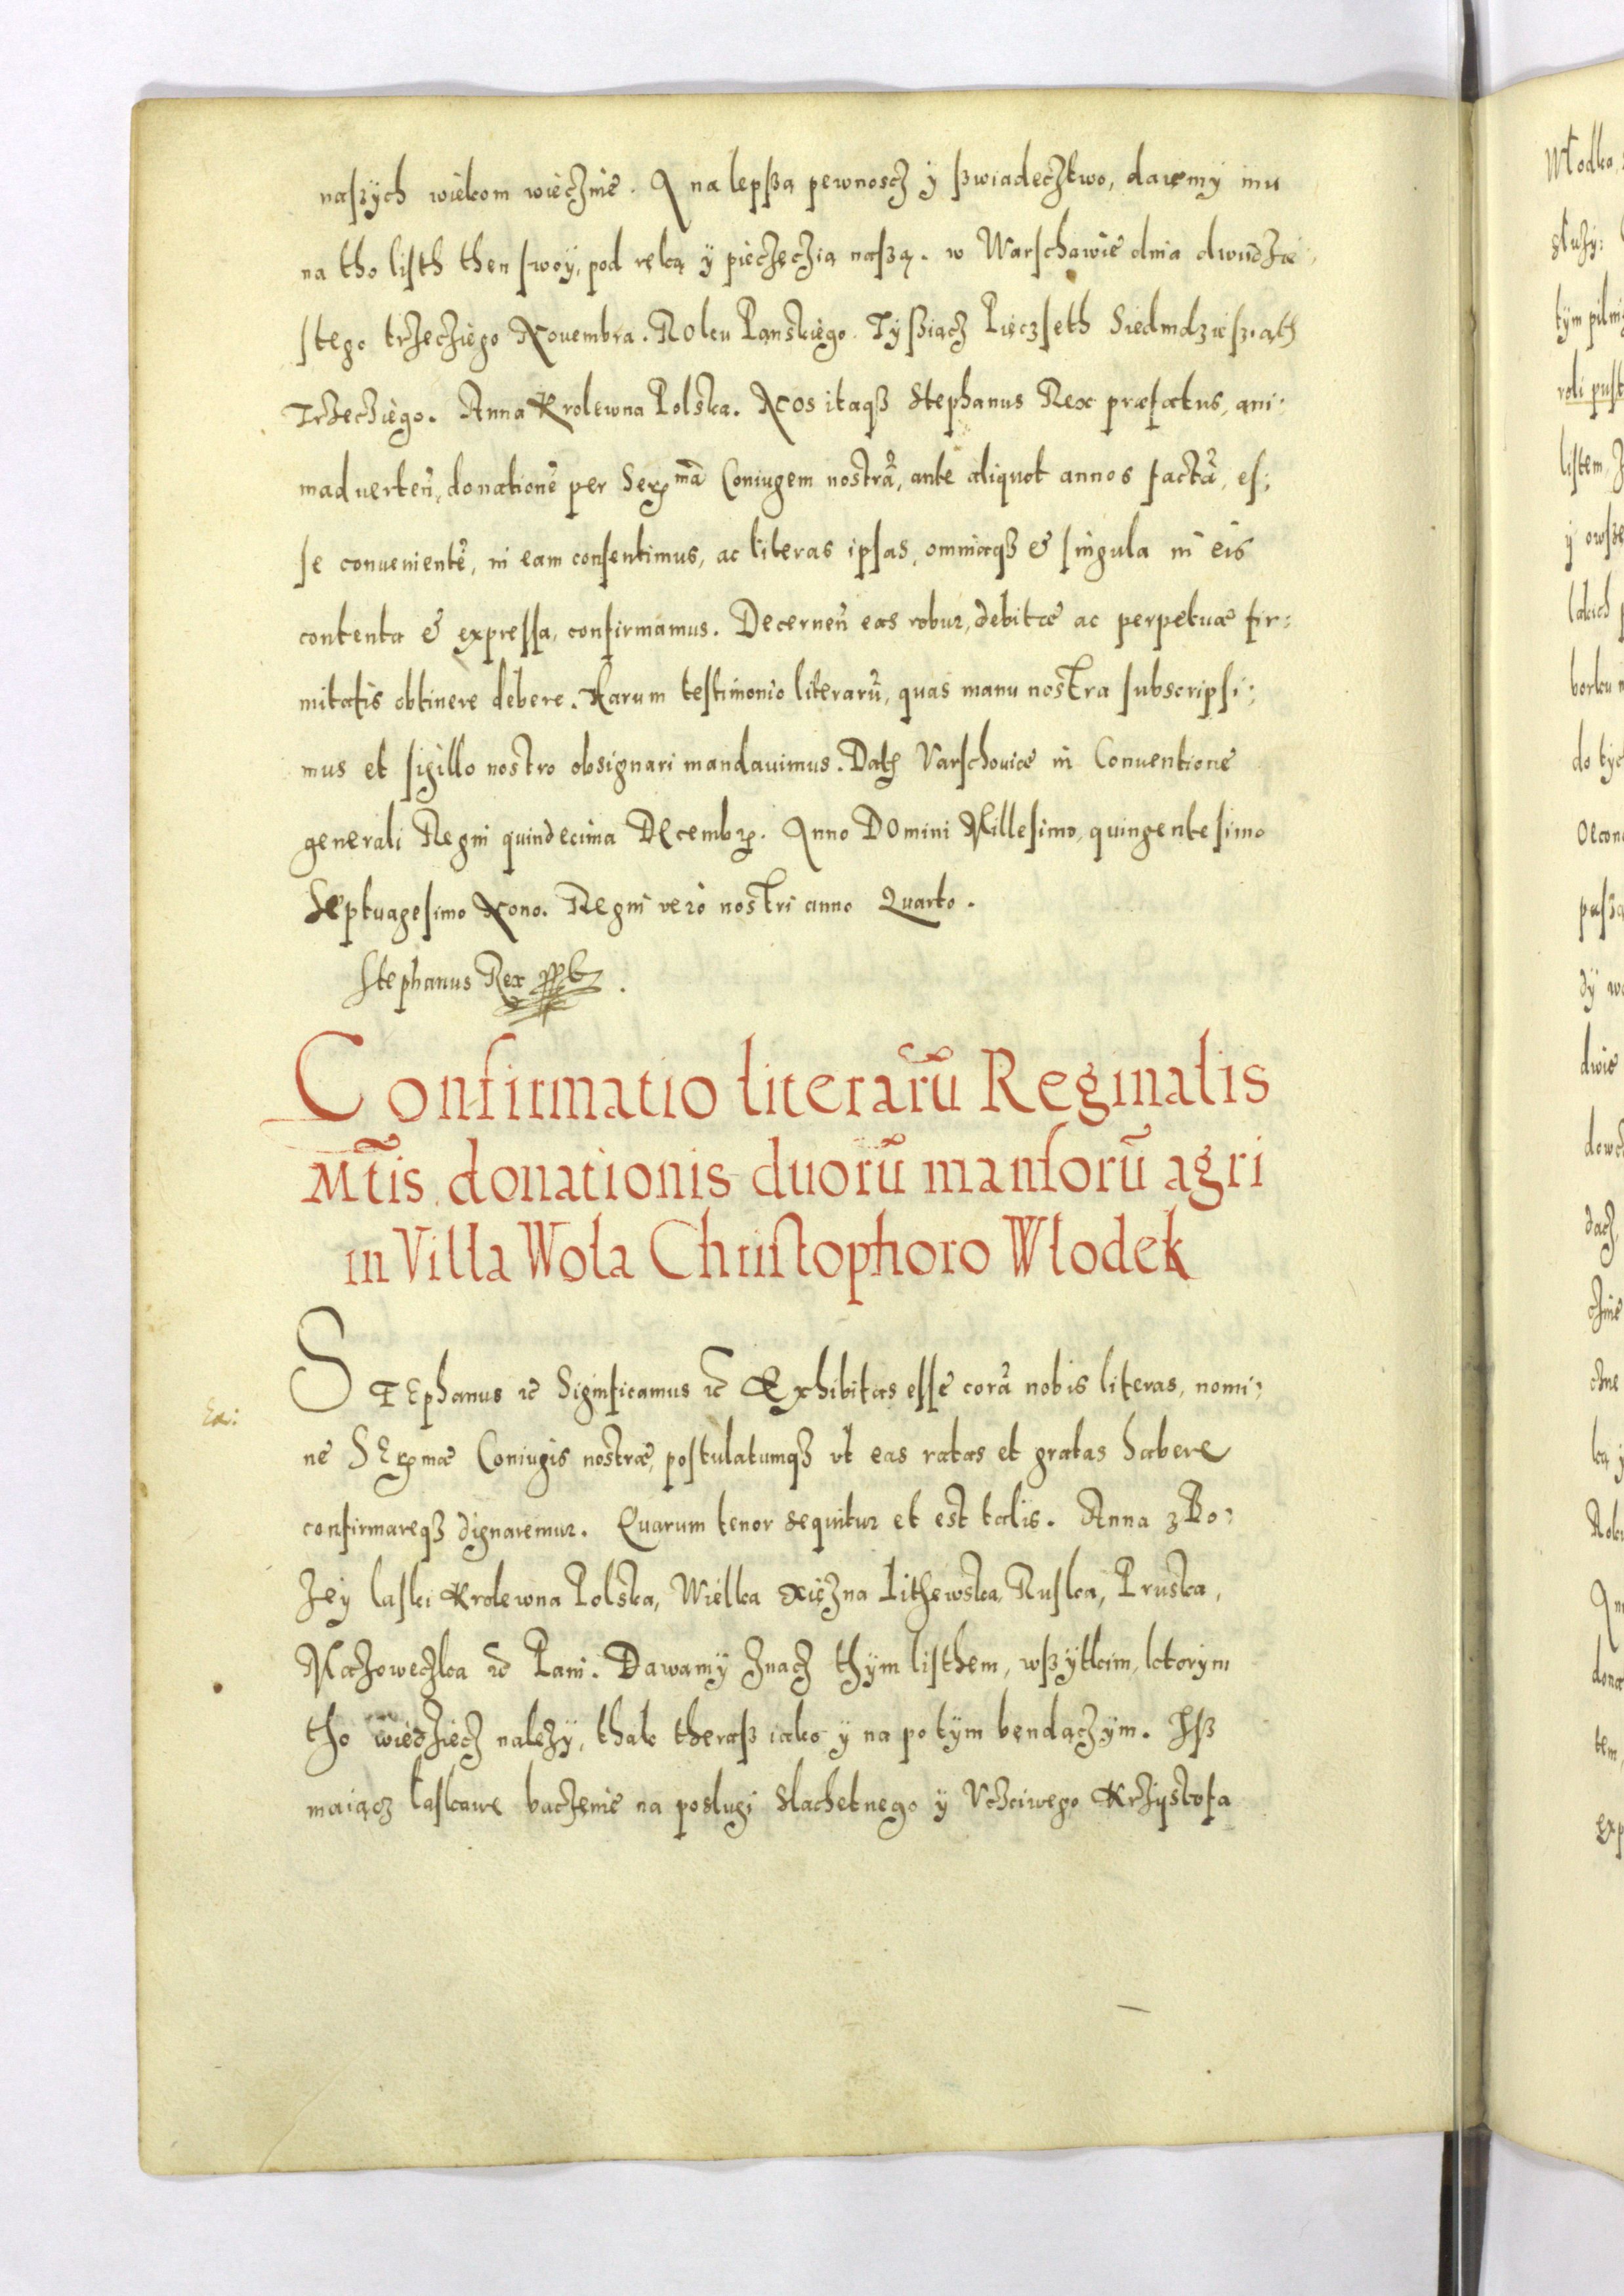 naszych wiekom wiecznie. A na lepßą pewnoscz ÿ ßwiadecztwo, dawmÿ mu
na tho listh then swoÿ, pod ręką ÿ pieczęczią naßą. w Warschawie dnia dwudzie
stego trzecziego Nouembra. Roku Panskiego. Tÿßiącz Pięczseth Siedmdziesziąth
Trzecziego. Anna Krolewna Polska. Nos itaqꝫ Stephanus Rex præfatus, ani:
maduerteñ, donationē per Serᵐᵃ̄ Coniugem nostrā, ante aliquot annos factā, es:
se conuenientē, in eam consentimus, ac literas ipsas, omniaqꝫ & singula in eis
contenta & expressa, confirmamus. Decerneñ eas robur, debitæ ac perpetuæ fir:
mitatis obtinere debere. Harum testimonio literarū, quas manu nostra subscripsi:
mus et sigillo nostro obsignari mandauimus. Datꝫ Varschouiæ in Conuentione
generali Regni quindecima Decembꝝ. Anno Domini Millesimo, quingentesimo
Septuagesimo Nono. Regni verò nostri anno Quarto.
Stephanus Rex sspt.
Confirmatio literarū Reginalis
Mtīs donationis duorū mansorū agri
in Villa Wola Christophoro Włodek
STEphanus ꝛc̄ Significamus ꝛc̄ Exhibitas esse corā nobis literas, nomi:
ne SErmæ Coniugis nostræ, postulatumqꝫ vt eas ratas et gratas habere
confirmareqꝫ dignaremur. Quarum tenor sequitur et est talis. Anna z Bo:
zeÿ laski Krolewna Polska, Wielka xiężna Lithewska, Ruska, Pruska,
Mazowieczka ꝛc̄ Pani. Dawamÿ znacz thÿm listhem, wßÿtkim, ktorÿm
tho wiedziecz nalezÿ, thak theraß iako ÿ na potÿm bendączÿm. Iß
maiącz łaskawe baczenie na posługi Slachetnego ÿ Vczciwego Krzÿstofa